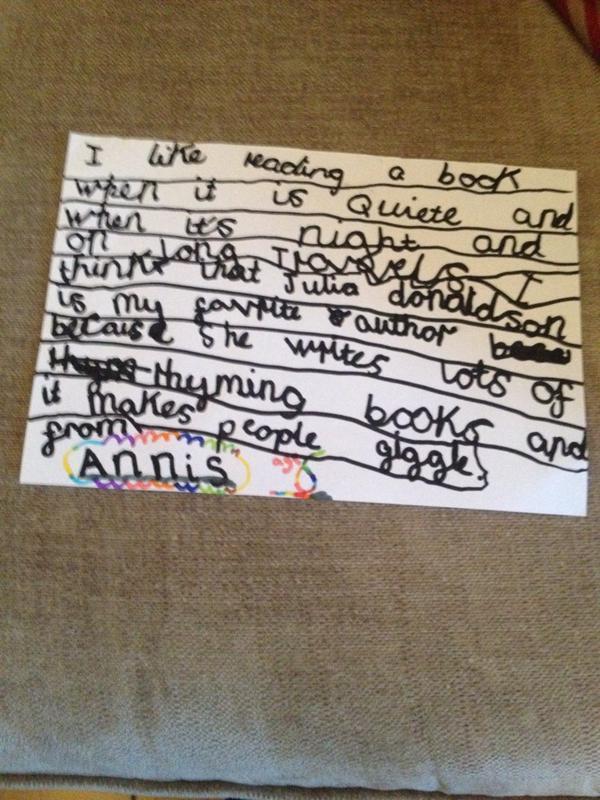 I like reading a book
when it is Quiete and
when it's night and
on long Travels I
think that Julia donaldson
is my favrite author
because she writes lots of
rhyming books and
it makes people giggle.
from
Annis
age